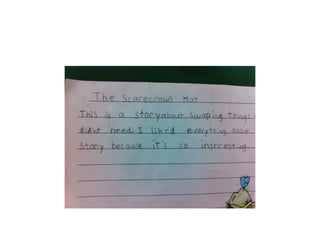 The Scarecrows Hat
This is a story about swaping things
didnt need. I liked everything
Story because it's so intresting.